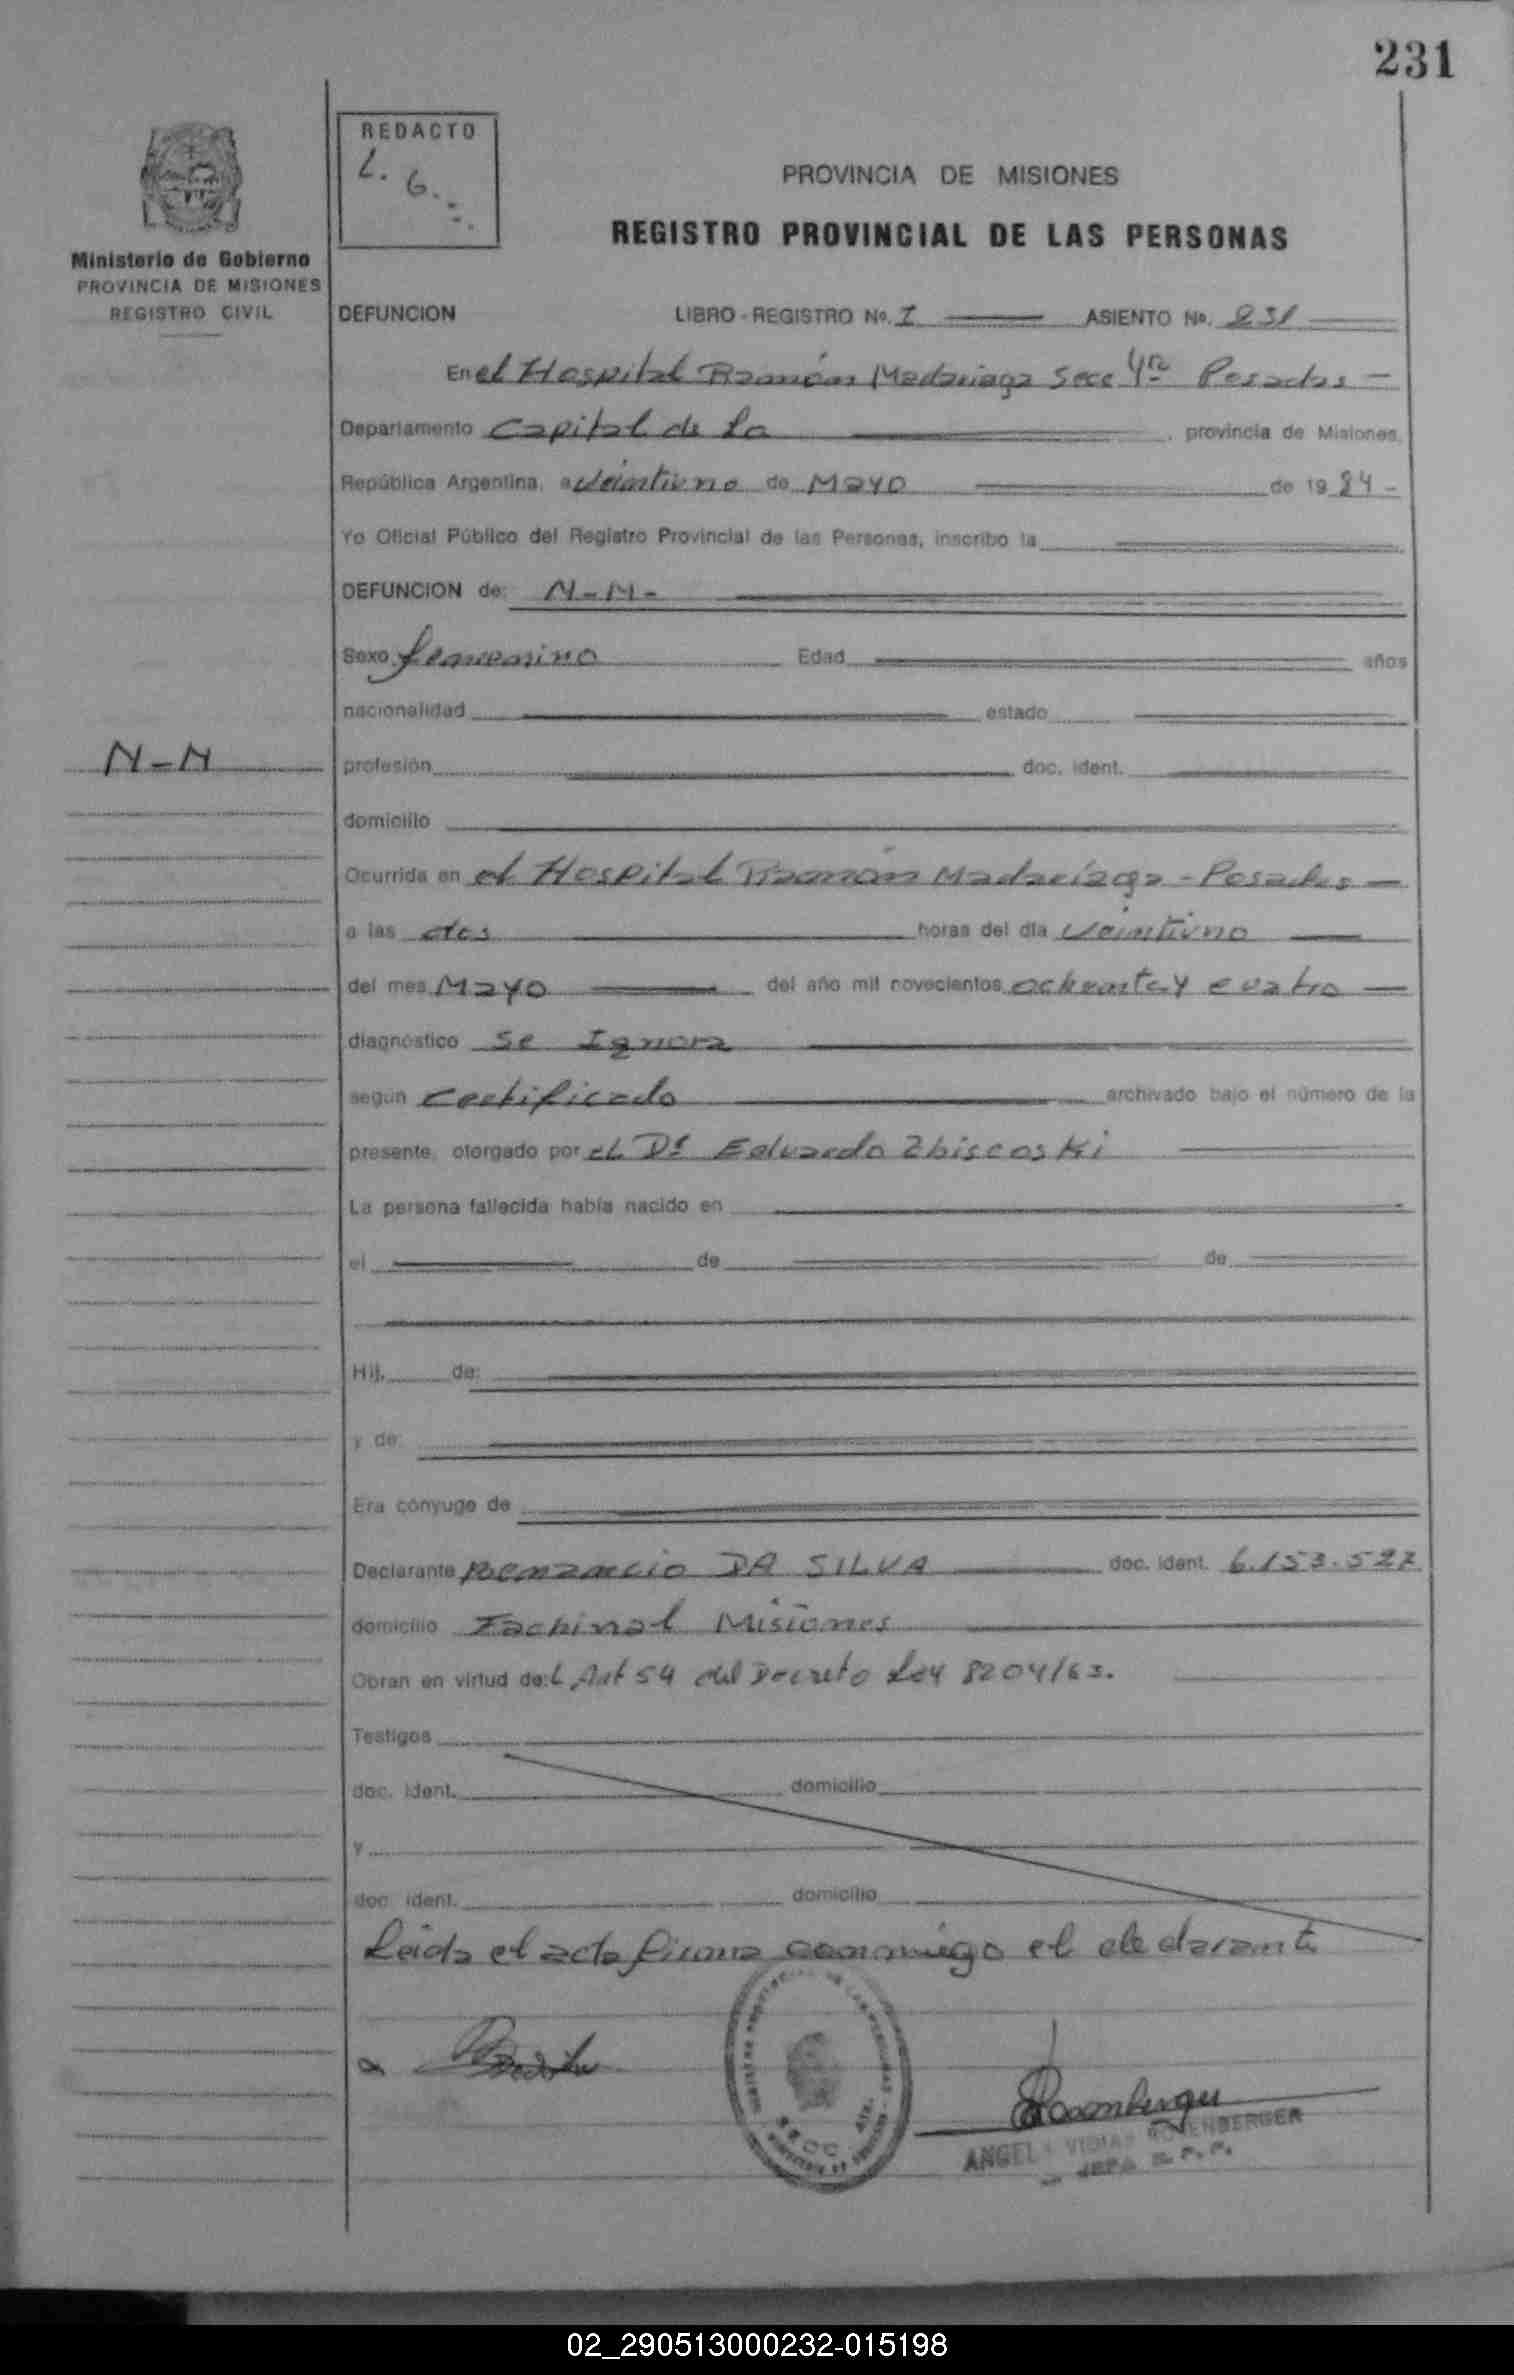 231
REDACTO
L. G.
Ministerio de Gobierno
PROVINCIA DE MISIONES
REGISTRO CIVIL
PROVINCIA DE MISIONES
REGISTRO PROVINCIAL DE LAS PERSONAS
DEFUNCION LIBRO - REGISTRO No. I ASIENTO No. 231
En el Hospital Ramón Madariaga Secc 4ta Posadas -
Departamento Capital de la , provincia de Misiones,
República Argentina, a Veintiuno de Mayo de 19 84 -
Yo Oficial Público del Registro Provincial de las Personas, inscribo la
DEFUNCION de: N-N-
Sexo femenino Edad años
nacionalidad estado
N-N
profesión doc. ident.
domicilio
Ocurrida en el Hospital Ramón Madariaga - Posadas -
a las dos horas del día Veintiuno
del mes Mayo del año mil novecientos ochenta y cuatro -
diagnóstico Se Ignora
según Certificado archivado bajo el número de la
presente, otorgado por el Dr Eduardo Zbiscoski
La persona fallecida había nacido en
el de de
Hij. de:
y de:
Era cónyuge de
Declarante DA SILVA doc. ident. 6.153.527
domicilio Fachinal Misiones
Obran en virtud de: L Art 54 del Decreto Ley 8204/63.
Testigos
doc. ident. domicilio
y
doc. ident. domicilio
Leida el acta firma conmigo el declarante
Rosenberger
ANGELA ROSENBERGER
JEFA
02_290513000232-015198